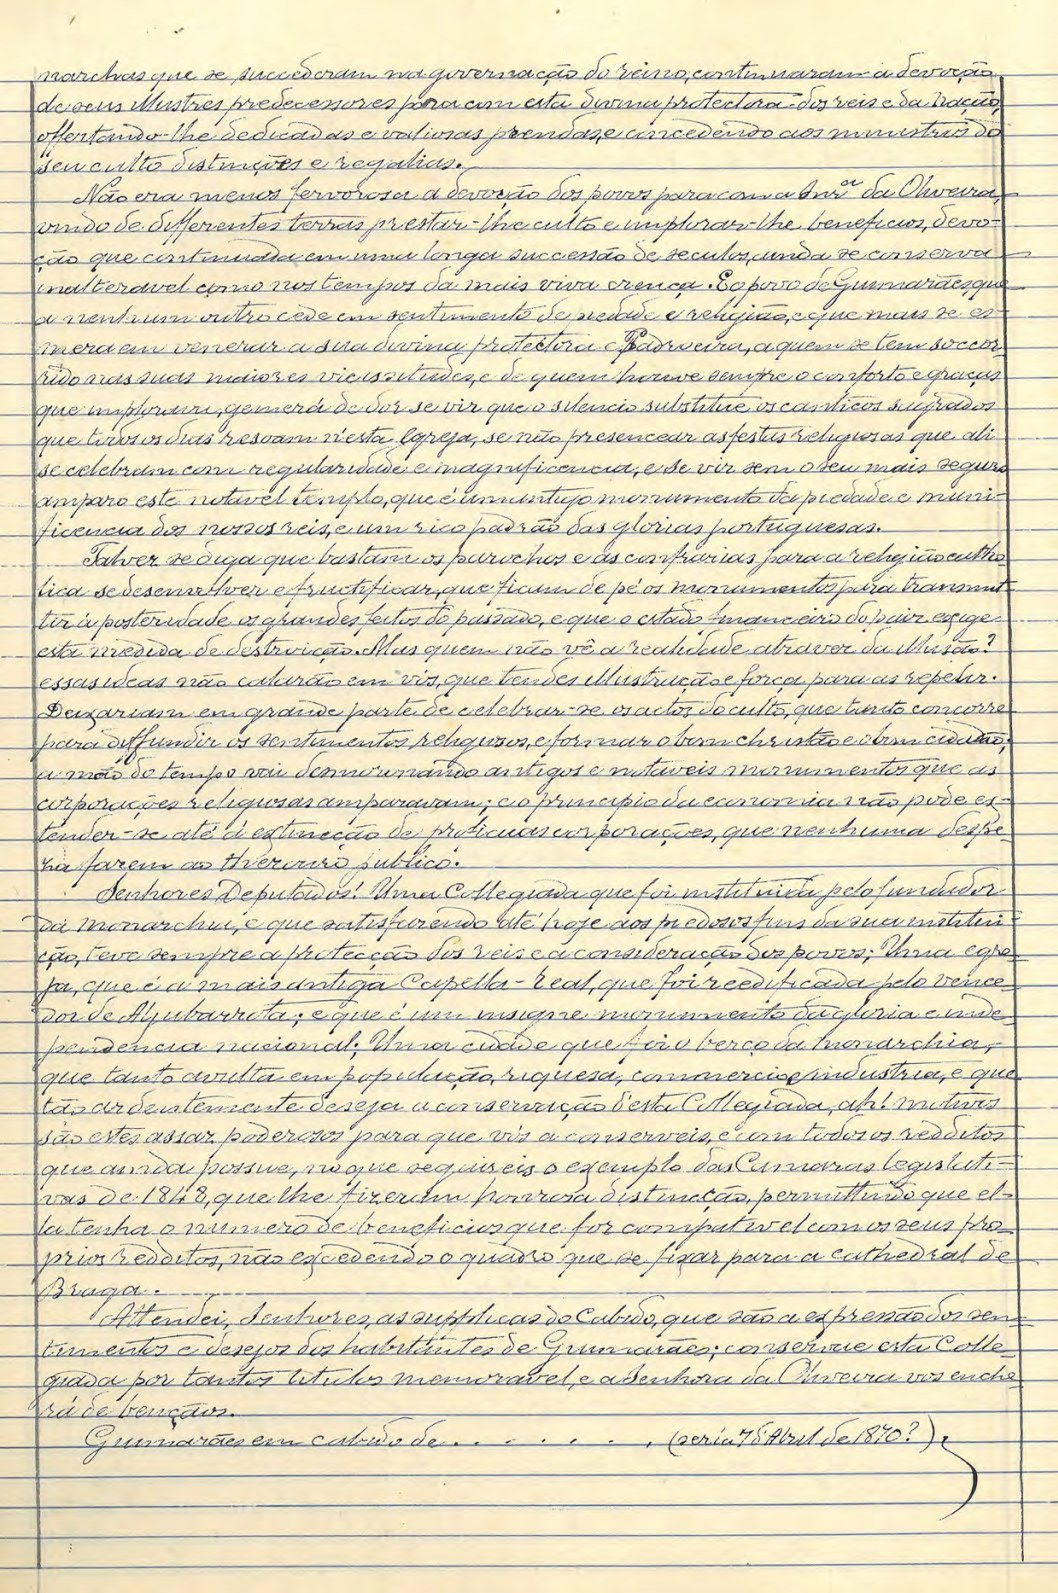 narchas que se succederam na governação do reino, continuaram a devoção
de seus illustres predecessores para com esta divina protectora dos reis e da Nação,
offertando-lhe dedicadas e valiosas prendas, e concedendo aos ministros do
seu culto distincções e regalias.
Não era menos fervorosa a devoção dos povos para com a Snrª da Oliveira,
vindo de differentes terras prestar-lhe culto e implorar-lhe beneficios, devo-
ção que continuada em uma longa successão de seculos, ainda se conserva
inalteravel como nos tempos da mais viva crença. E o povo de Guimarães, que
a nenhum outro cede em sentimento de piedade e religião, e que mais se es-
mera em venerar a sua divina protectora e Padroeira, a quem se tem soccor-
rido nas suas maiores vicissitudes, e de quem houve sempre o conforto e graças
que implorou, gemerá de dor se vir que o silencio substitue os canticos sagrados
que todos os dias resoam n'esta Egreja, se não presencear as festas religiosas que ali
se celebram com regularidade e magnificencia, e se vir sem o seu mais seguro
amparo este notavel templo, que é um antigo monumento da piedade e muni-
ficencia dos nossos reis, e um rico padrão das glorias portuguesas.
Talvez se diga que bastam os parochos e as confrarias para a religião catho
lica se desenvolver e fructificar, que ficam de pé os monumentos para transmit-
tir á posteridade os grandes feitos do passado, e que o estado financeiro do paiz exige
esta medida de destruição. Mas quem não vê a realidade atravez da illusão?
essas ideas não calarão em vós, que tendes illustração e força para as repelir.
Deixariam em grande parte de celebrar-se os actos do culto, que tanto concorre
para diffundir os sentimentos religiosos, e formar o bom christão e o bom cidadão;
a mão do tempo vai desmoronando antigos e notaveis monumentos que as
corporações religiosas amparavam; e o principio da economia não pode es-
tender-se até á extincção de proficuas corporações, que nenhuma despe
za fazem ao thezouro publico.
Senhores Deputados! Uma Collegiada que foi instituida pelo fundador
da monarchia, e que satisfazendo até hoje aos piedosos fins da sua institui-
ção, teve sempre a protecção dos reis e a consideração dos povos; Uma egre
ja, que é a mais antiga Capella-real, que foi reedificada pelo vence
dor de Aljubarrota; e que é um insigne monumento da gloria e inde
pendencia nacional; Uma cidade que foi o berço da monarchia,
que tanto avulta em população, riquesa, commercio e industria, e que
tão ardentemente deseja a conservação d'esta Collegiada, ah! motivos
são estes assaz poderosos para que vós a conserveis, e com todos os redditos
que ainda possue, no que seguireis o exemplo das Camaras legislati-
vas de 1848, que lhe fizeram honrosa distincção, permittindo que el-
la tenha o numero de beneficios que for compativel com os seus pro
prios redditos, não excedendo o quadro que se fixar para a cathedral de
Braga.
Attendei, Senhores, as supplicas do Cabido, que são a expressão dos sen-
timentos e desejos dos habitantes de Guimarães; conservae esta Colle
giada por tantos titulos memoravel, e a Senhora da Oliveira vos enche
rá de bençãos.
Guimarães em cabido de . . . . . . . (seria 7 d'Abril de 1870?).